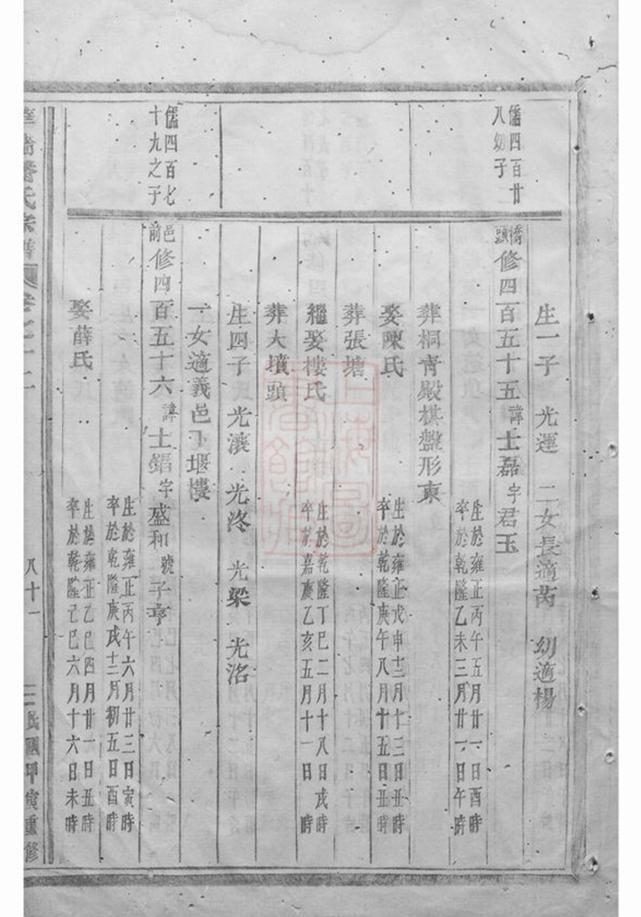 生一子 光運 二女長適芮 幼適楊
儒四百廿八幼子
橋頭修四百五十五諱士磊字君玉
生於雍正丙午五月廿一日酉時
卒於乾隆乙未三月廿一日午時
葬桐青殿棋盤形東
娶陳氏
生於雍正戊申十二月十三日丑時
卒於乾隆庚午八月十五日丑時
葬張塘
繼娶樓氏
生於乾隆丁巳二月十八日戌時
卒於嘉慶乙亥五月十一日時
葬大墳頭
生四子 光瀼 光洛 光梁 光洛
一女適義邑下堰樓
儒四百七十九之子
邑前修四百五十六諱士錩字盛和號子亨
生於雍正丙午六月廿三日寅時
卒於乾隆庚戌十二月初五日酉時
娶薛氏
生於雍正乙巳四月廿一日丑時
卒於乾隆己巳六月十六日未時
氏宗譜
八十一
民國甲寅重修